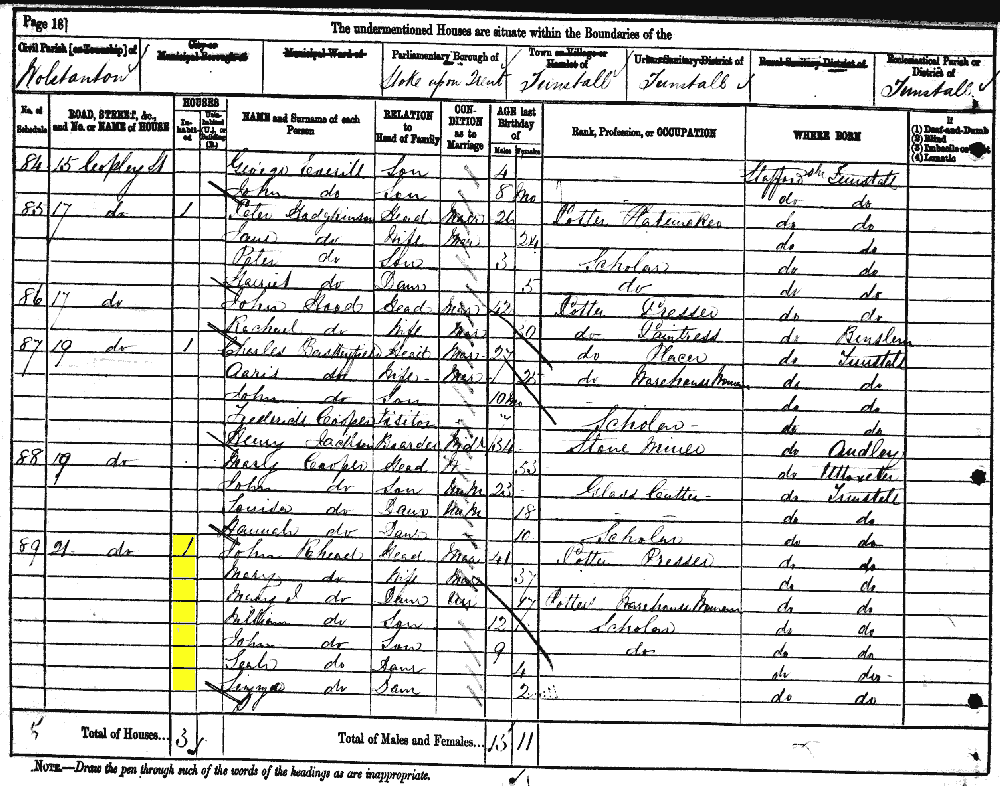 Page 16]
The undermentioned Houses are situate within the Boundaries of the
Civil Parish [or Township] of City or Municipal Borough of Municipal Ward of Parliamentary Borough of Town or Village or Hamlet of Urban Sanitary District of Rural Sanitary District of Ecclesiastical Parish or District of
Wolstanton Stoke upon Trent Tunstall Tunstall Tunstall
No. of Schedule ROAD, STREET, &c., and No. or NAME of HOUSE HOUSES Inhabited Uninhabited (U.), or Building (B.) NAME and Surname of each Person RELATION to Head of Family CONDITION as to Marriage AGE last Birthday of Males Females Rank, Profession, or OCCUPATION WHERE BORN If (1) Deaf-and-Dumb (2) Blind (3) Imbecile or Idiot (4) Lunatic
84 15 Copley St George Everill Son 4 Staffordsh Tunstall
John do Son 8 mo do do
85 17 do 1 Peter Hodgkinson Head Mar 26 Potter Platemaker do do
Jane do Wife Mar 24 do do
Peter do Son 3 Scholar do do
Harriet do Daur 5 do do do
86 17 do John Hood Head Mar 42 Potter Presser do do
Rachael do Wife Mar 30 do Paintress do Burslem
87 19 do 1 Charles Head Mar 27 do Placer do Tunstall
do Wife Mar 25 do Warehouse Woman do do
John do Son 10 mo do do
Frederick Cooper Visitor Scholar do do
Henry Jackson Boarder 34 Stone Miner do Audley
88 19 do Mary Cooper Head W 53 do Uttoxeter
John do Son Unm 23 Glass Cutter do Tunstall
Louisa do Daur Unm 18 do do
Hannah do Daur 10 Scholar do do
89 21 do 1 John Head Mar 41 Potter Presser do do
Mary do Wife Mar 37 do do
Mary J do Daur Un 17 Potter Warehouse Woman do do
William do Son 12 Scholar do do
John do Son 9 do do do
Leah do Daur 4 do do
do Daur 2 do do
5 Total of Houses... 3 Total of Males and Females... 13 11
NOTE.—Draw the pen through such of the words of the headings as are inappropriate.